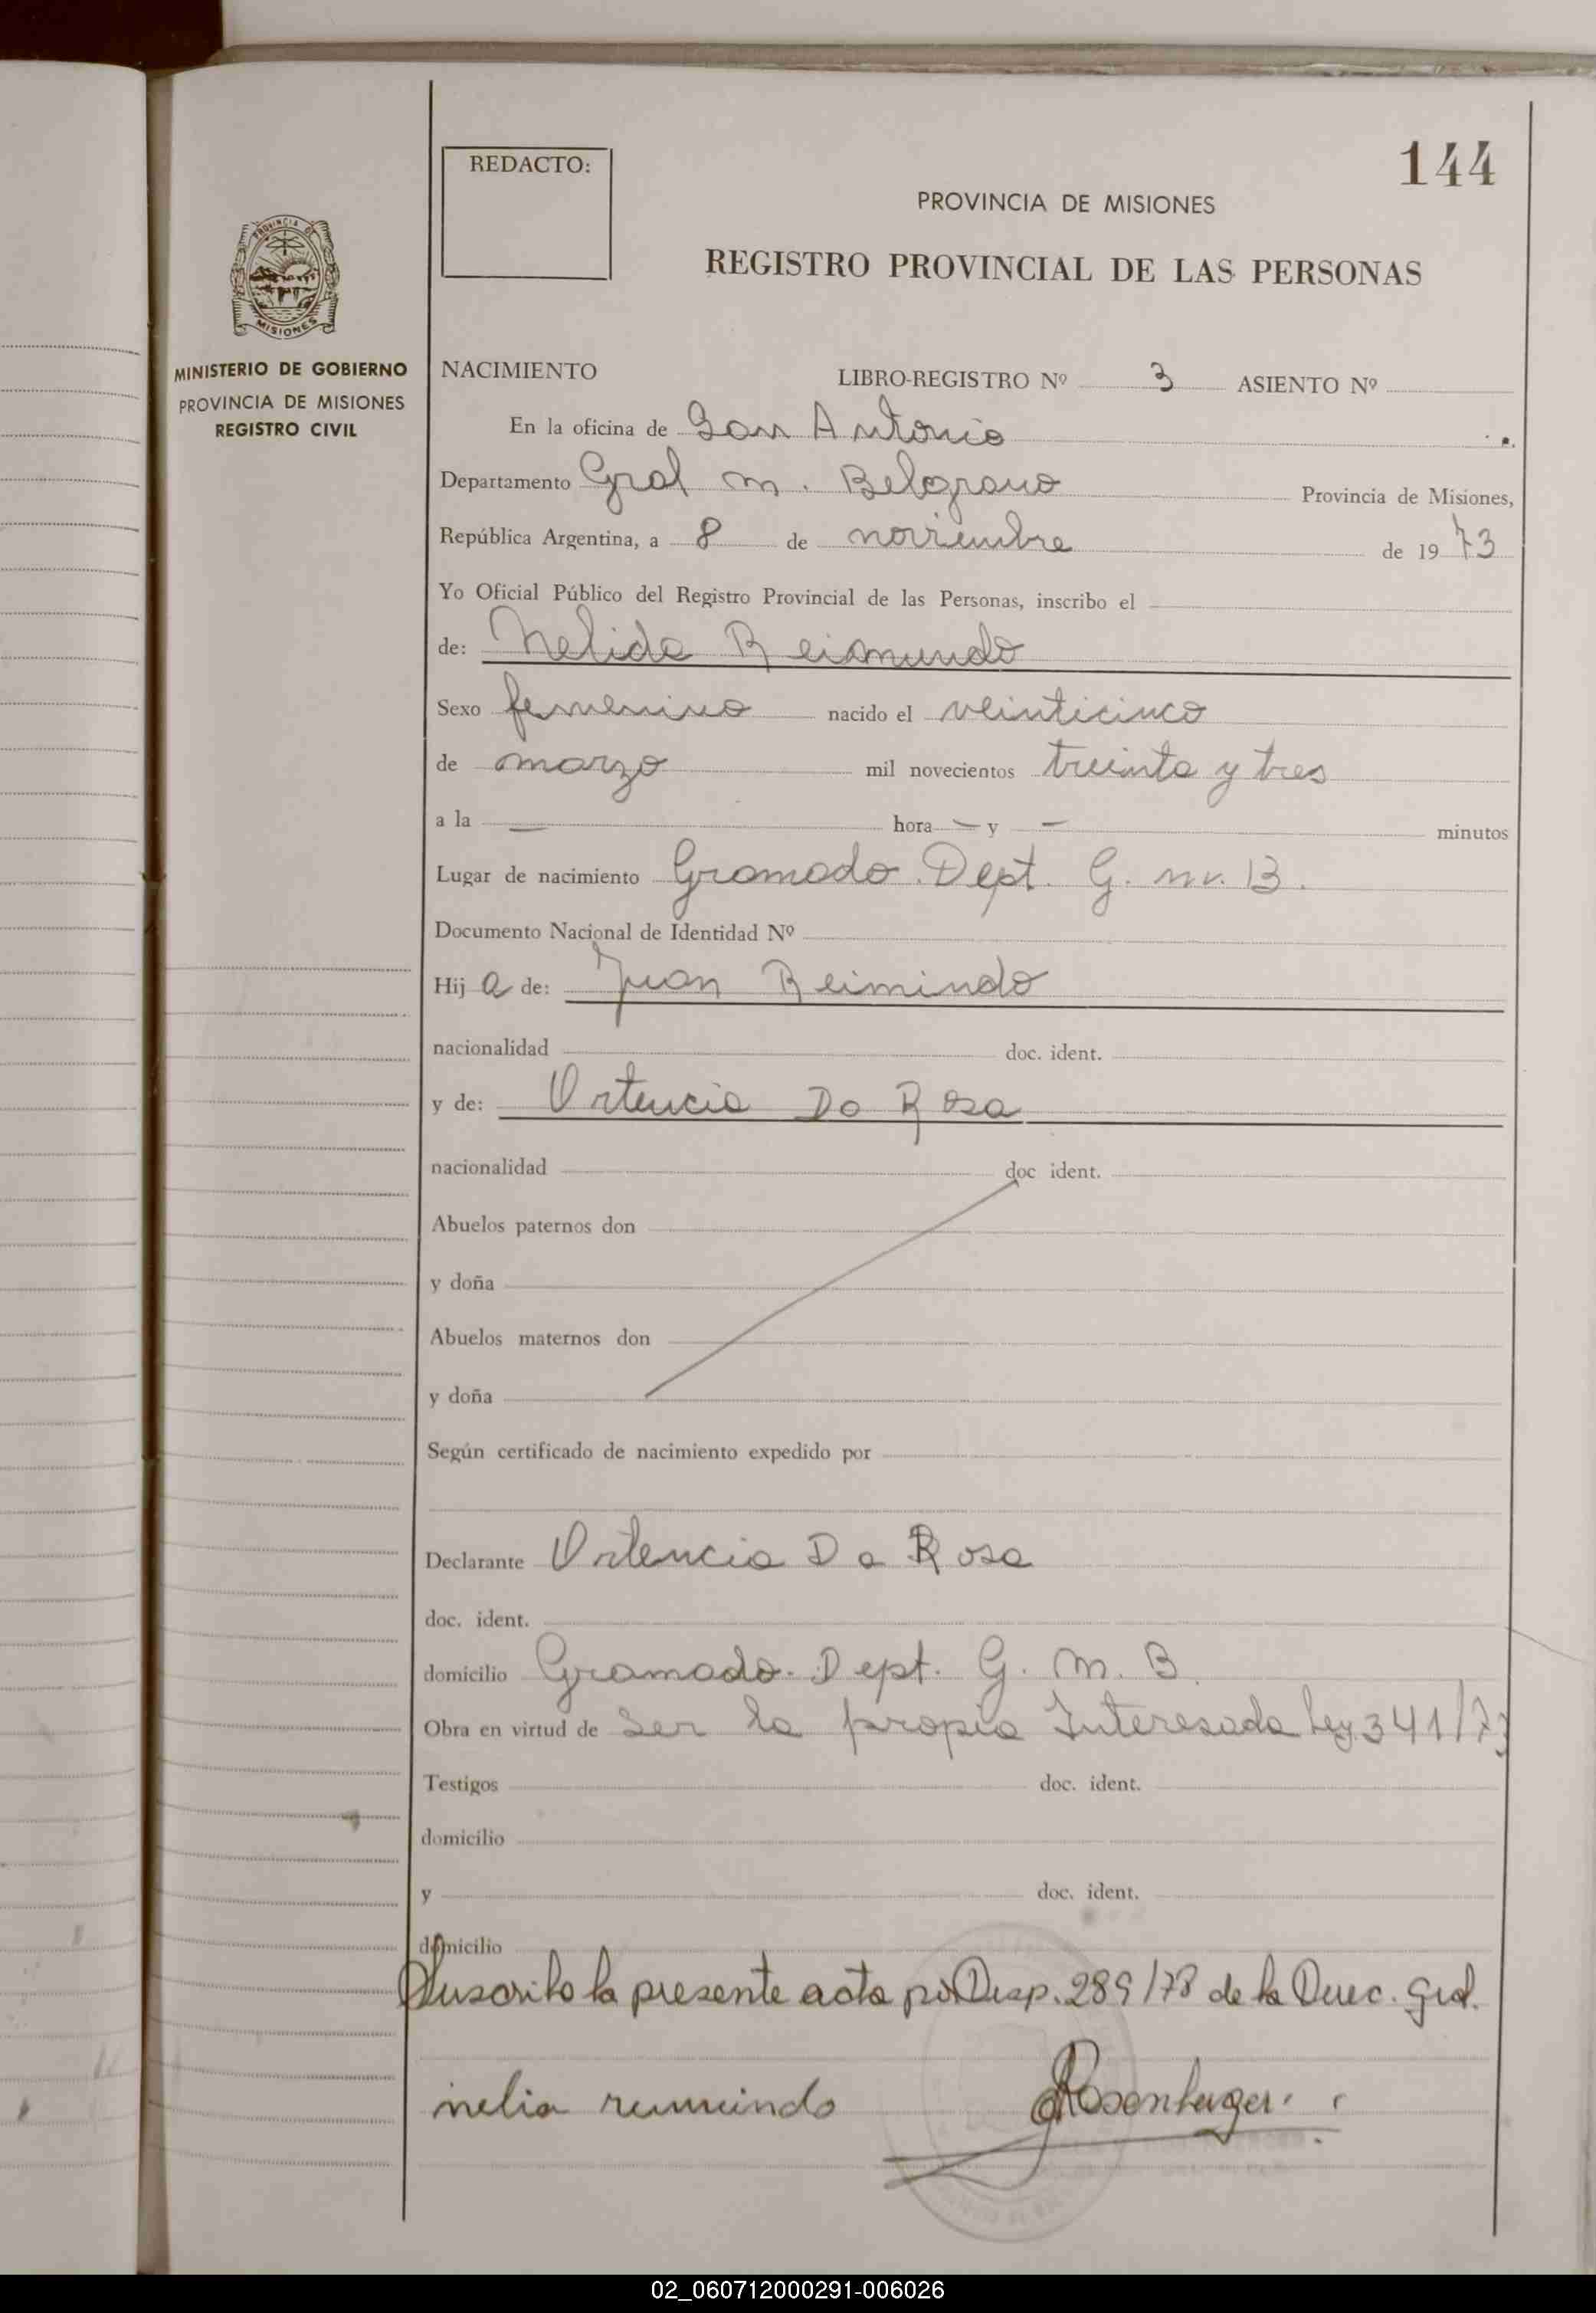 144
REDACTO:
PROVINCIA DE MISIONES
REGISTRO PROVINCIAL DE LAS PERSONAS
PROVINCIA DE
MISIONES
MINISTERIO DE GOBIERNO
PROVINCIA DE MISIONES
REGISTRO CIVIL
NACIMIENTO LIBRO-REGISTRO Nº 3 ASIENTO Nº
En la oficina de San Antonio
Departamento Gral m. Belgrano Provincia de Misiones,
República Argentina, a 8 de noviembre de 1973
Yo Oficial Público del Registro Provincial de las Personas, inscribo el
de: Nelida Reimundo
Sexo femenino nacido el veinticinco
de marzo mil novecientos treinta y tres
a la — hora — y — minutos
Lugar de nacimiento Gramado. Dept. G. m. B.
Documento Nacional de Identidad Nº
Hij a de: Juan Reimindo
nacionalidad doc. ident.
y de: Ortencia Da Rosa
nacionalidad doc ident.
Abuelos paternos don
y doña
Abuelos maternos don
y doña
Según certificado de nacimiento expedido por
Declarante Ortencia Da Rosa
doc. ident.
domicilio Gramado. Dept. G. M. B.
Obra en virtud de Ser la propia Interesada Ley 341/73
Testigos doc. ident.
domicilio
y doc. ident.
domicilio
Suscribo la presente acta por Disp. 289/78 de la Direc. Gral.
nelia reimindo Rosenberger
02_060712000291-006026